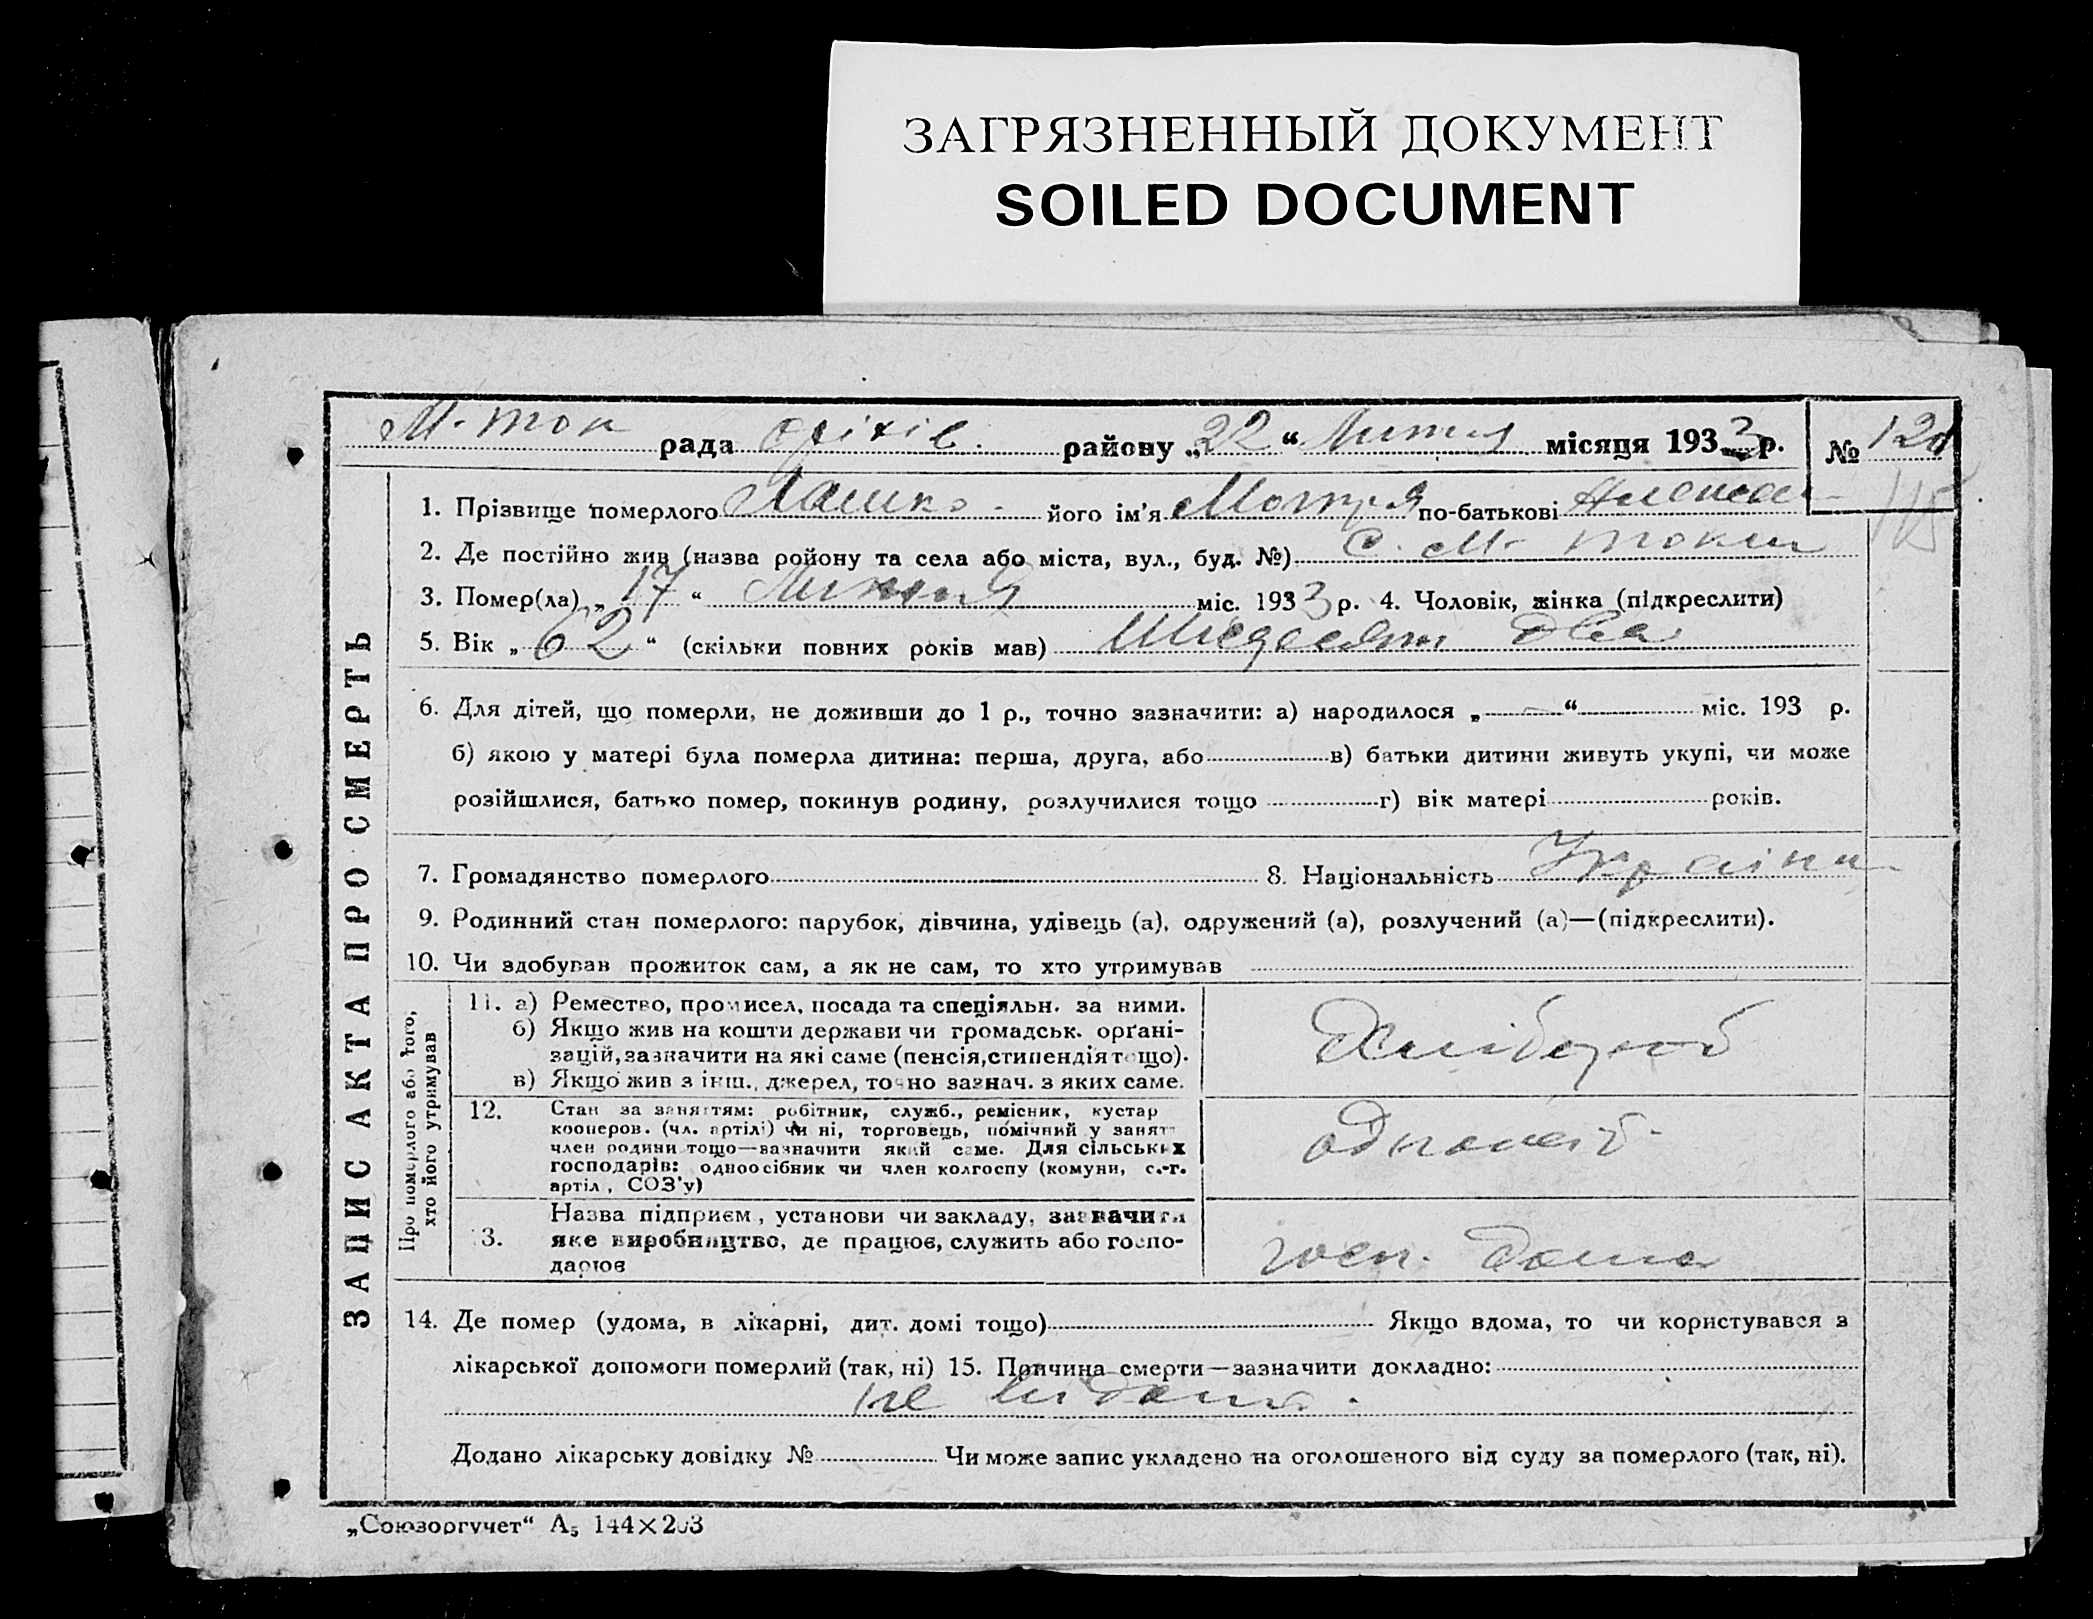 ЗАГРЯЗНЕННЫЙ ДОКУМЕНТ
SOILED DOCUMENT
М-ток рада оріхів. району „22“ Липня місяця 1933 р. №
1. Прізвище померлого Лашко його ім'я Мотря по-батькові
115
2. Де постійно жив (назва ройону та села або міста, вул., буд. №) С. М- Токм
3. Помер(ла) „17“ Липня міс. 1933 р. 4. Чоловік, жінка (підкреслити)
5. Вік „62“ (скільки повних років мав) Шісдесят два
6. Для дітей, що померли, не доживши до 1 р., точно зазначити: а) народилося „ “ міс. 193 р.
б) якою у матері була померла дитина: перша, друга, або в) батьки дитини живуть укупі, чи може
розійшлися, батько помер, покинув родину, розлучилися тощо г) вік матері років.
7. Громадянство померлого 8. Національність Україн
9. Родинний стан померлого: парубок, дівчина, удівець (а), одружений (а), розлучений (а)—(підкреслити).
10. Чи здобував прожиток сам, а як не сам, то хто утримував
ЗАПИС АКТА ПРО СМЕРТЬ
Про померлого або того,
хто його утримував
11. а) Ремество, промисел, посада та спеціяльн. за ними.
б) Якщо жив на кошти держави чи громадськ. орґані-
зацій, зазначити на які саме (пенсія, стипендія тощо).
в) Якщо жив з інш., джерел, точно зазнач. з яких саме.
Хлібороб
12. Стан за заняттям: робітник, служб., ремісник, кустар
кооперов. (чл. артілі) чи ні, торговець, помічний у занятт
член родини тощо—зазначити який саме. Для сільських
господарів: одноосібник чи член колгоспу (комуни, с.-г.
артіл, СОЗ'у)
одноосіб-
13. Назва підприєм, установи чи закладу, зазначити
яке виробництво, де працює, служить або госпо-
дарює
госп. дома
14. Де помер (удома, в лікарні, дит. домі тощо) Якщо вдома, то чи користувався з
лікарської допомоги померлий (так, ні) 15. Причина смерти—зазначити докладно:
не відома.
Додано лікарську довідку № Чи може запис укладено на оголошеного від суду за померлого (так, ні).
„Союзоргучет“ А₅ 144×203